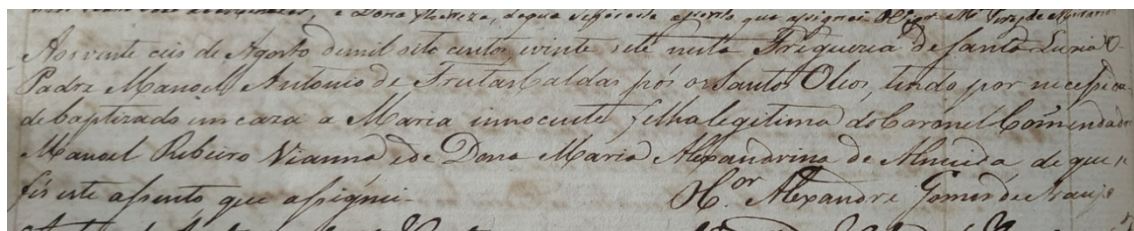 e Dona Thereza, do que se fez este assento que assignei O Vigr.
Aos vinte ceis de Agosto de mil oito centos evinte sete nesta Freguezia de Santa Luzia o
Padre Manoel Antonio de Freitas Caldas pós os Santos Oleos, tendo por necessida
de baptizado em caza a Maria innocente filha legitima do Coronel Comendador
Manoel Ribeiro Vianna e de Dona Maria Alexandrina de Almeida de que
fis este assento que assignei. O V.or Alexandre Gomes de Araujo